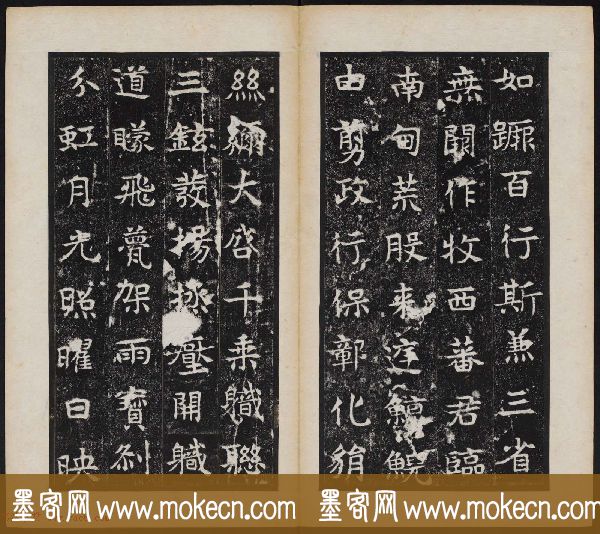 如百行斯兼三省
無闕作牧西蕃君臨
南甸股来鯨鯢
由剪政行保鄣化
絲大啓千乘軄聯
三鉉發揚拯開軄
道矇飛甍架雨寶刹
分虹月光照曜日映
墨客网 www.mokecn.com 墨客网 www.mokecn.com